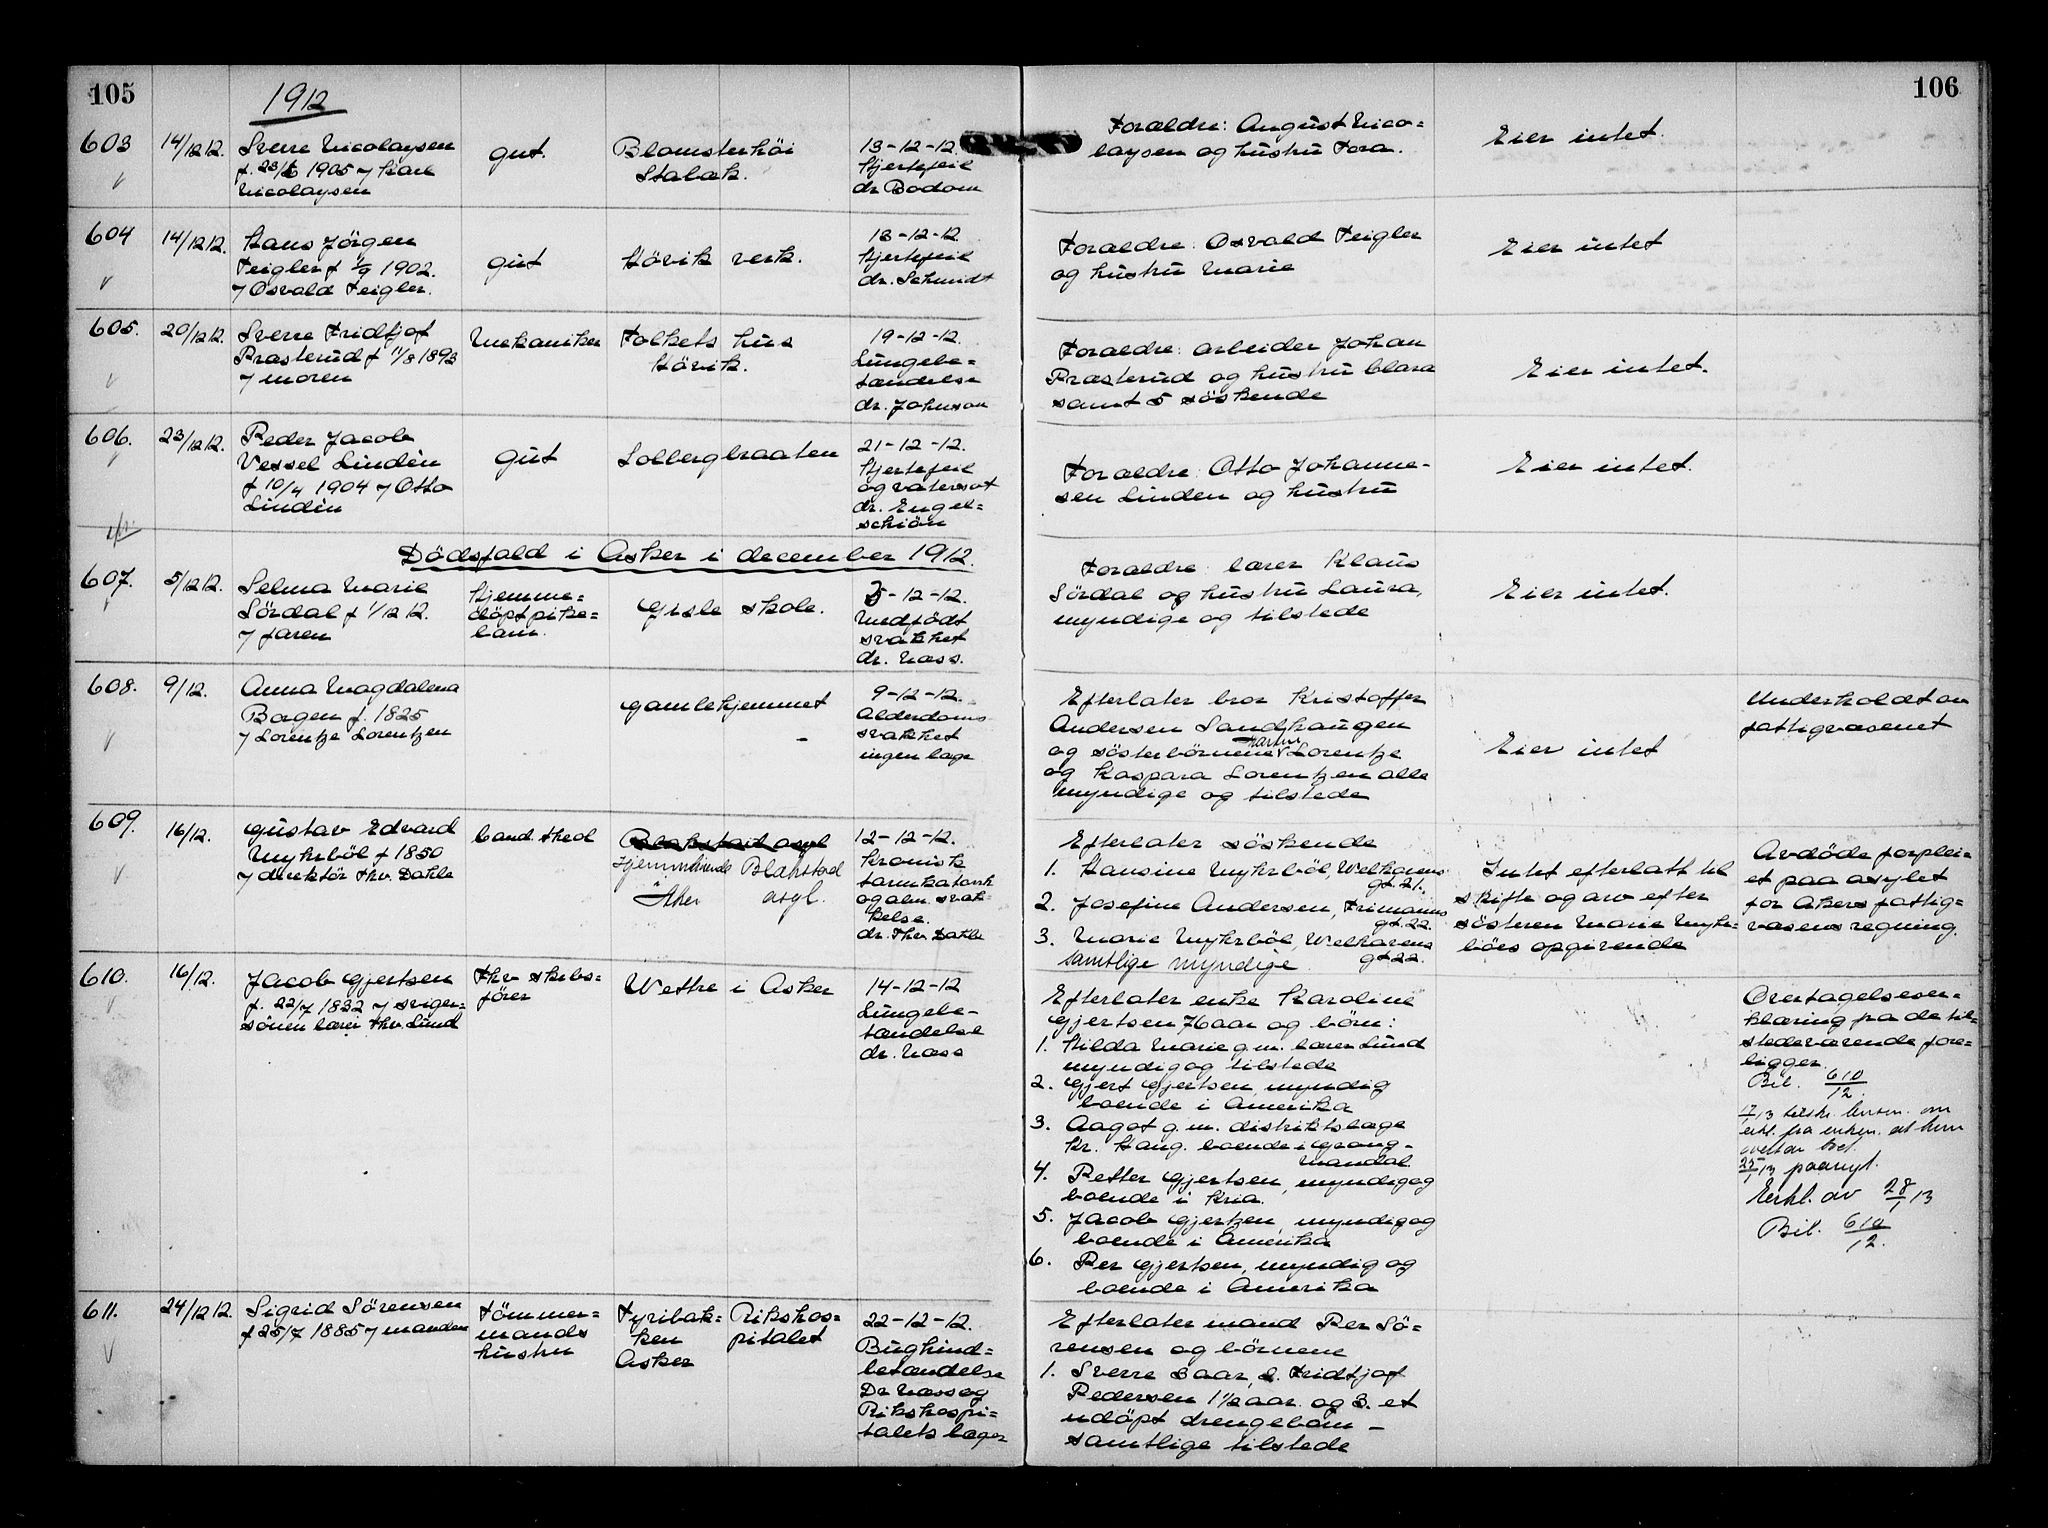 105
1912
106
603
14/12 12.
Sverre Nicolaysen
f. 23/6 1905 / Kare
Nicolaysen
gut.
Blomsterhöi
Stabæk.
13-12-12.
Hjertefeil
dr Bodom
Foraeldre: August Nico=
laysen og hustru Tora.
Eier intet.
604
14/12 12.
Hans Jörgen
Feigler f 1/9 1902.
/ Osvald Feigler.
gut
Hövik verk.
13-12-12.
Hjertefeil
dr. Schmidt
Foraeldre: Osvald Feigler
og hustru Marie
Eier intet
605.
20/12 12.
Sverre Fridtjof
Præsterud f 11/8 1893
/ moren
Mekaniker
Folkets hus
Hövik.
19-12-12.
Lungebe=
tændelse
dr. Johnson
Foraeldre: arbeider Johan
Præsterud og hustru Clara
samt 5 söskende
Eier intet.
606.
23/12 12.
Peder Jacob
Vessel Lindén
f 10/4 1904 / Otto
Lindén
gut
Solbergbraaten
21-12-12.
Hjertefeil
og vatersot
dr. Engel=
schiön
Foraeldre: Otto Johanne=
sen Linden og hustru
Eier intet.
Dödsfald i Asker i december 1912.
607.
5/12 12.
Selma Marie
Sördal f 1/12 12.
/ faren
Hjemme=
döpt pike=
barn.
Gisle skole.
5-12-12.
Medfödt
svakhet
dr. Næss.
Foraeldre: lærer Klaus
Sördal og hustru Laura,
myndige og tilstede
Eier intet.
608.
9/12.
Anna Magdalena
Borgen f. 1825
/ Lorentze Lorentzen
gamlehjemmet
9-12-12.
Alderdoms
svakhet
ingen læge
Efterlater bror Kristoffer
Andersen Sandhaugen
og sösterbörnene Martin, Lorentze
og Kaspara Lorentzen alle
myndige og tilstede
Eier intet
Underholdt av
fattigvæsenet
609.
16/12.
Gustav Edvard
Myhrböl f 1850
/ direktör Thv. Dahle
Cand. theol
Blakstad asyl
Hjemmehörende Blakstad
Aker asyl.
12-12-12.
Kronisk
tarmkatarrh
og alm. svak-
kelse.
dr. Thv. Dahle
Efterlater söskende
1. Hansine Myhrböl, Welhavens
gt. 21.
2. Josefine Andersen, Frimanns
gt. 22.
3. Marie Myhrböl, Welhavens
gt 22.
samtlige myndige.
Intet efterlatt til
skifte og arv efter
sösteren Marie Myhr=
böes opgivende
Avdöde forplei=
et paa asylet
for Akers fattig=
væsens regning.
610.
16/12.
Jacob Gjertsen
f. 22/7 1832 / sviger=
sönnen lærer Thv. Lund
Fhv skibs=
förer
Wettre i Asker
14-12-12
Lungebe-
tændelse
dr. Næss
Efterlater enke Karoline
Gjertsen 76 aar og börn:
1. Hilda Marie g.m. lærer Lund
myndig og tilstede
2. Gjert Gjertsen, myndig
boende i Amerika
3. Aagot g.m. distriktslæge
Kr. Haug. boende i Gröng-
Mandal.
4. Petter Gjertsen, myndig og
boende i Kria.
5. Jacob Gjertsen, myndig og
boende i Amerika
6. Per Gjertsen, myndig og
boende i Amerika
Overtagelseser=
klæring fra de til=
stedeværende fore=
ligger.
Bil. 610/12.
erkl. fra enken. at hun
overtar boet.
25/1 13 paanyt.
Erkl. av 28/1 13
Bil. 610/12.
611.
24/12 12.
Sigrid Sørensen
f 25/7 1885 / manden
Tömmer=
mands
hustru
Fyribak=
ken
Asker
Rikshos=
pitalet
22-12-12.
Bughind=
betændelse
Dr Næss og
Rikshospi=
talets læger
Efterlater mand Per Sö=
rensen og börnene
1. Sverre 3 aar, 2. Fridtjof
Pedersen 1 1/2 aar. og 3. et
udöpt drengebarn -
samtlige tilstede